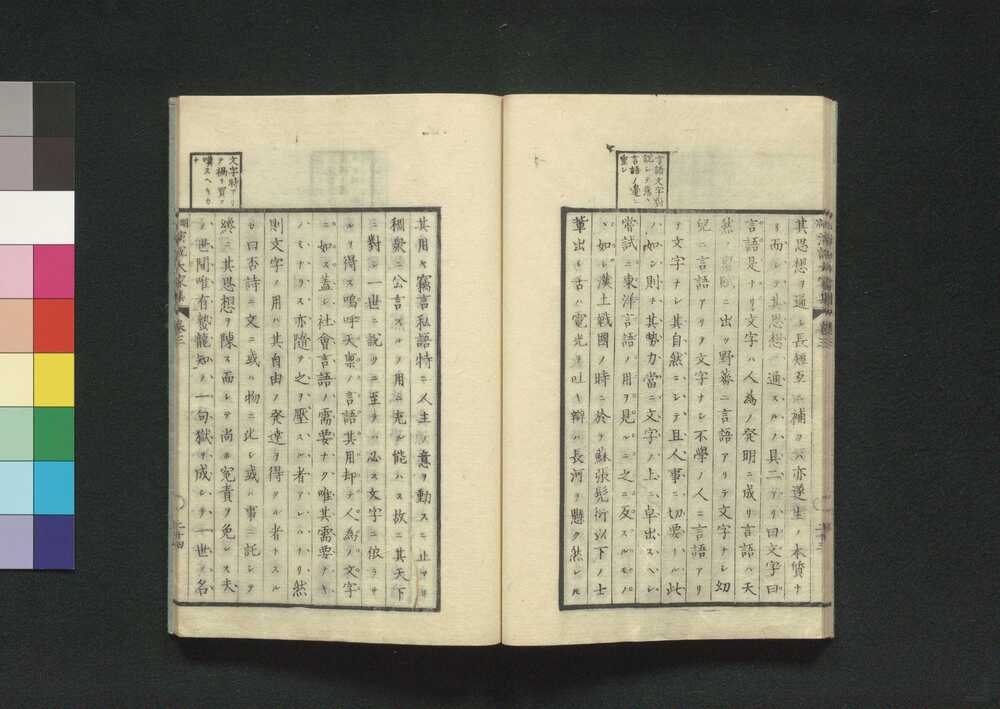 言語文字對
説シテ
言語ノ
重シ
其思想ヲ通シ長短互ニ補ヲハ亦遂生ノ本質ナ
リ而シテ其思想ヲ通スルノ具二アリ曰文字曰
言語是ナリ文字ハ人為ノ発明ニ成リ言語ハ天
然ノ賦ニ出ツ野蕃ニ言語アリテ文字ナシ幼
兒ニ言語アリテ文字ナシ不學ノ人ニ言語アリ
テ文字ナシ其自然ニシテ且人事ニ切要ナル此
ノ如シ則チ其勢力當ニ文字ノ上ニ卓出スヘシ
嘗試ニ東洋言語ノ用ヲ見ルニ之ニ反スルモノ
ノ如シ漢土戰國ノ時ニ於テ蘇張髡衍以下ノ士
輩出シ舌ハ電光ヲ吐キ辯ハ長河ヲ懸ク然レ
卷三
二十三
文字時アリ
テ禍ヲ買フ
嘆スヘキカ
ナ
其用ヰ竊言私語特ニ人主ノ意ヲ動スニ止マリ
稠衆ニ公言スルノ用ニ充ル能ハス故ニ其天下
ニ對シ一世ニ説クニ至テハ必ス文字ニ依ラサ
ルヲ得ス嗚呼天稟ノ言語其用却テ人為ノ文字
ニ如ス蓋シ社會言語ノ需要ナク唯其需要ナキ
ノミナラス亦隨テ之ヲ壓スル者アレハナリ然
則文字ノ用ハ其自由ノ発達ヲ得タル者ナルカ
曰否詩ニ文ニ或ハ物ニ比シ或ハ事ニ託シテ
終ニ其思想ヲ陳ス而シテ尚ホ冤責ヲ免レス夫
ノ世間唯有蟄龍知ノ一句獄ヲ成シテ一世ノ名
演説大家集
卷三
二十四